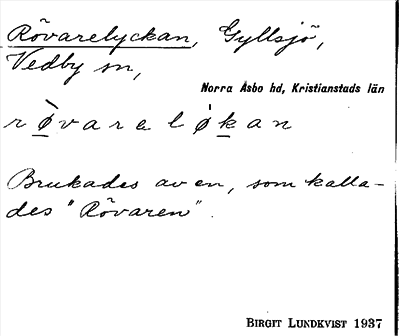 Rövarelyckan, Gyllsjö,
Vedby sn,
Norra Åsbo hd, Kristianstads län
r ö̀ v a r e l ó k a n
Brukades av en, som kalla-
des "Rövaren".
BIRGIT LUNDKVIST 1937